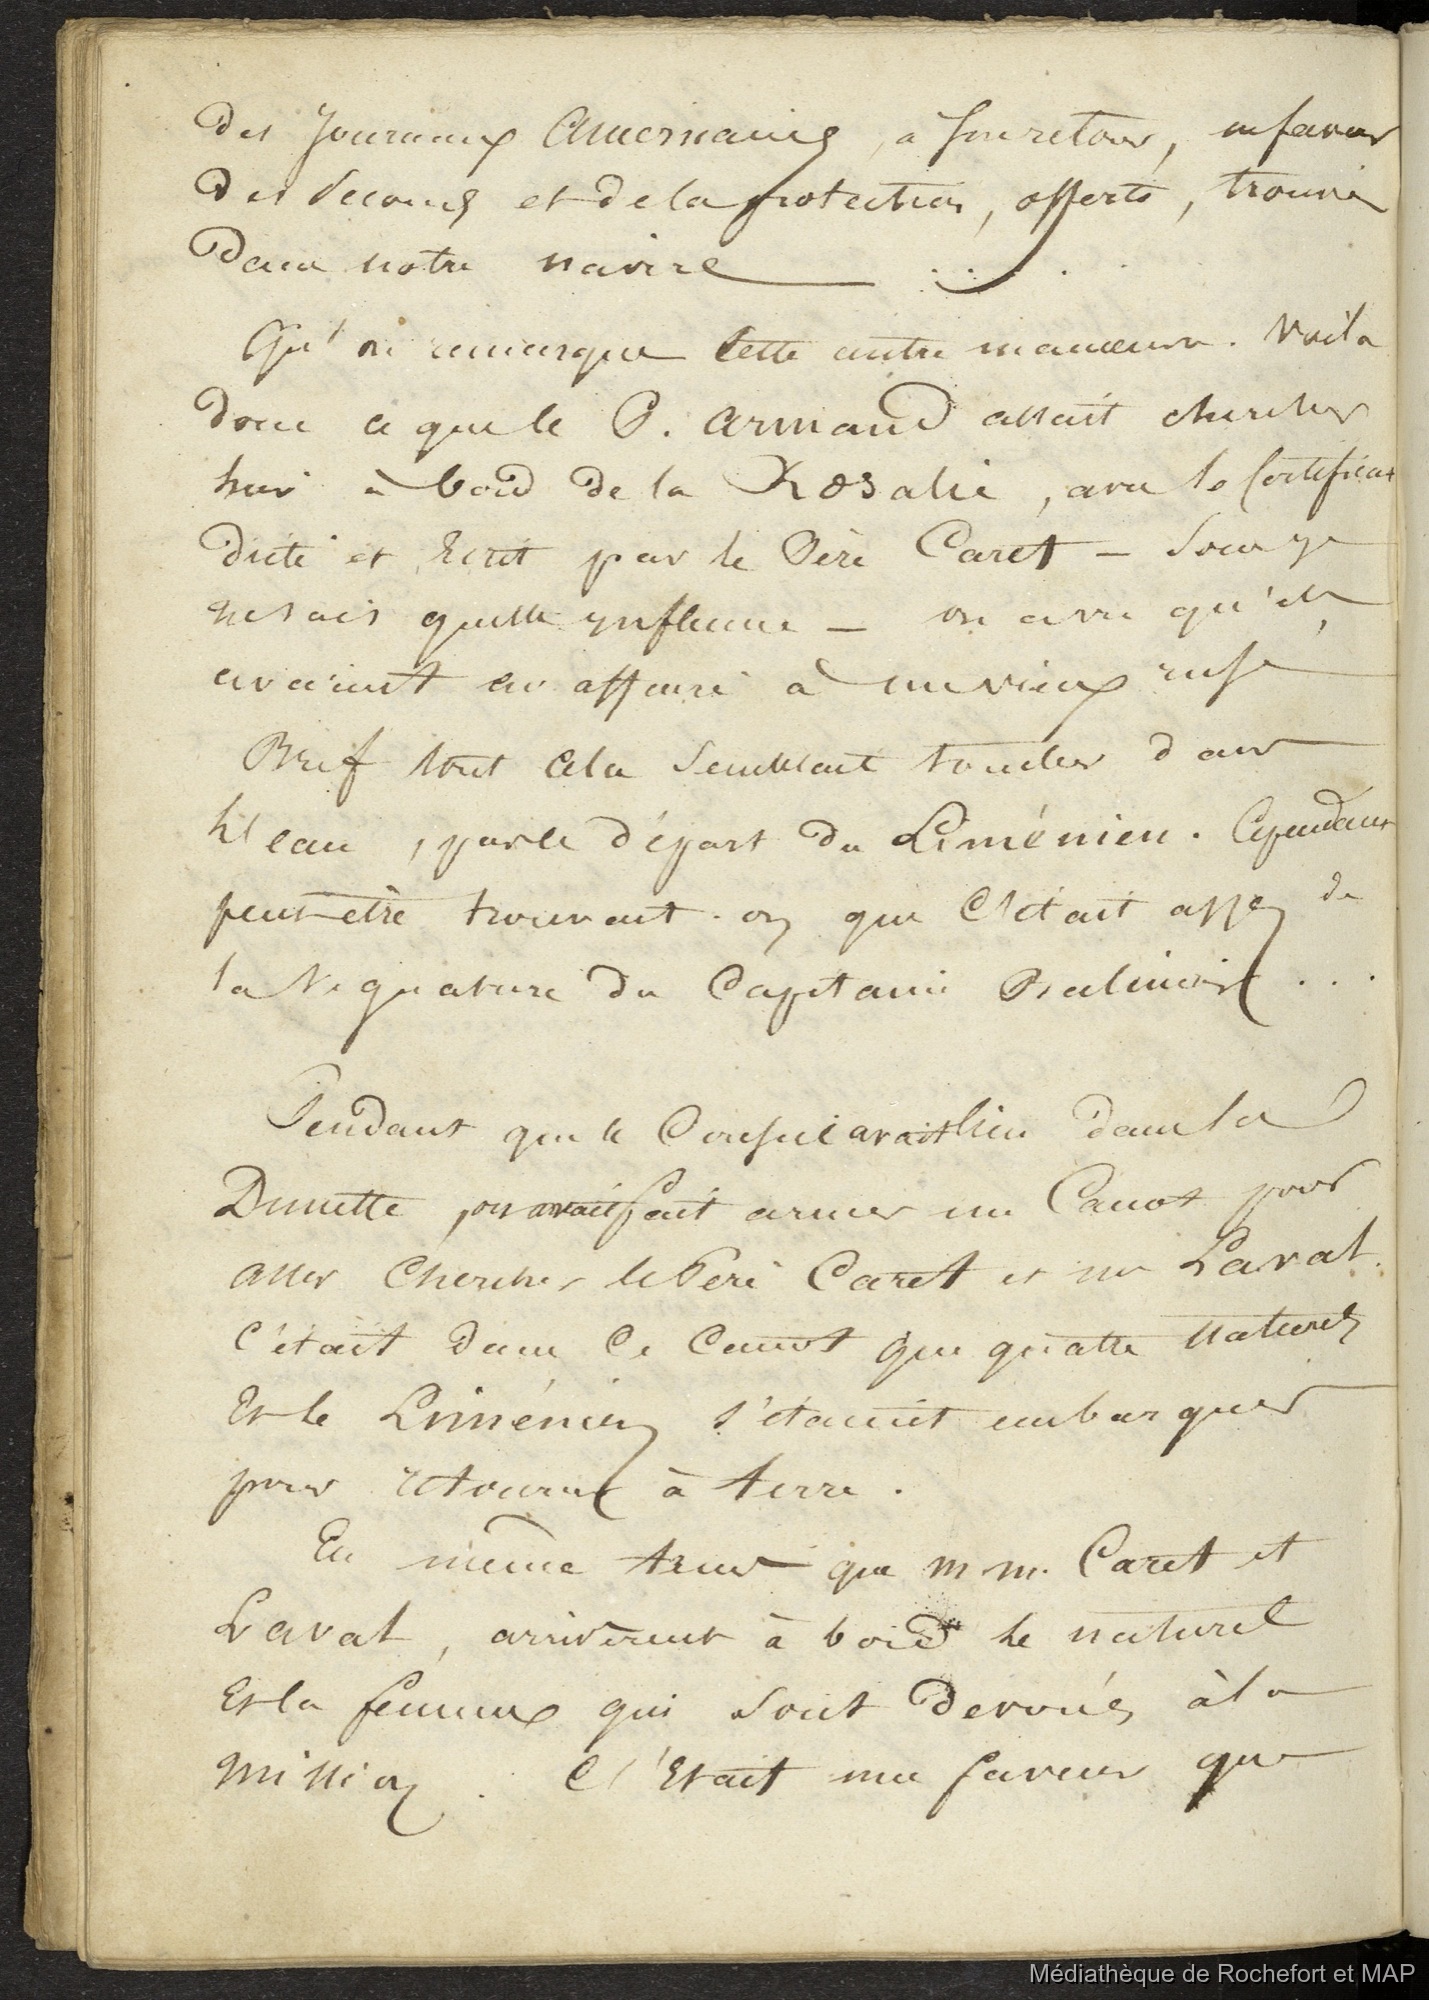 des Journaux Américains, à son retour, en faveur
des secours et de la protection, offerts, trouvés
dans notre navire
Qu'on remarque cette autre manœuvre. Voila
donc ce que le P. Armand allait chercher
hier à bord de la Rosalie, avec le Certificat
dicté et Ecrit par le Père Caret — Sous je
ne sais quelle ynfluence — on a vu qu'ils
avaient eu affaire à un vieux rusé
Bref tout cela semblait tomber dans
l'eau, par le départ du Liménien. Cependant
peut-être trouvait-on que C'était assez de
la Signature du Capitaine
Pendant que le Conseil avait lieu dans la
Dunette, on avait fait armer un Canot pour
aller Chercher le Père Caret et mr Laval.
C'était dans Ce Canot que quatre naturels
Et le Liménien s'étaient embarquer
pour retourner à terre.
En même tems que m.m. Caret et
Laval, arrivèrent à bord le naturel
Et la femme qui sont dévoués à la
Mission. C'Etait une faveur que
Médiathèque de Rochefort et MAP